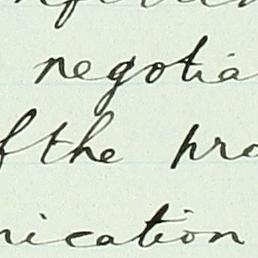 negotia
f the pro
nication